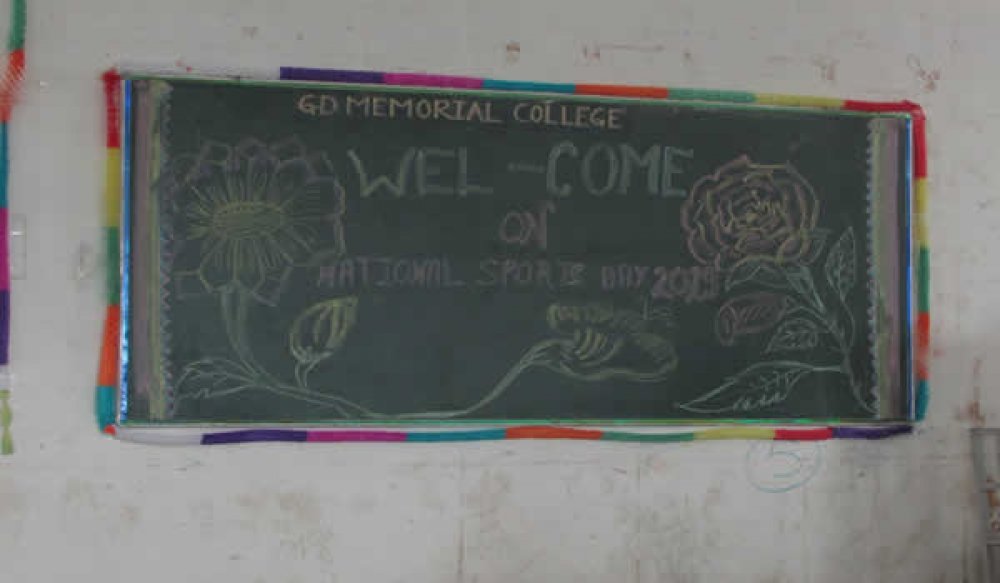 GD MEMORIAL COLLEGE
WEL-COME
ON
NATIONAL SPORTS DAY
5